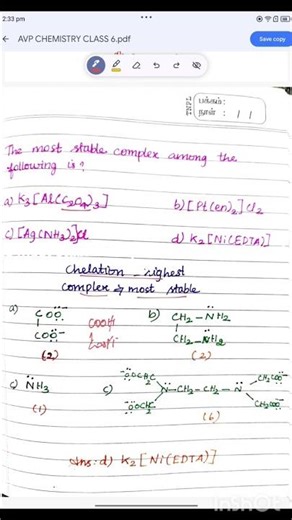 2:33 pm
AVP CHEMISTRY CLASS 6.pdf
Save copy
TNPL
பக்கம் :
நாள் : / /
The most stable complex among the
following is?
a) K3[Al(C2O4)3] b) [Pt(en)2]Cl2
c) [Ag(NH3)2]Cl d) K2[Ni(EDTA)]
Chelation - highest
complex → most stable
a) COO⁻ COOH b) CH2-NH2
COO⁻ COOH CH2-NH2
(2) (2)
c) NH3 c) ⁻OOCH2C N-CH2-CH2-N CH2COO⁻
(1) ⁻OOCH2C CH2COO⁻
(6)
Ans: d) K2[Ni(EDTA)]
InShot